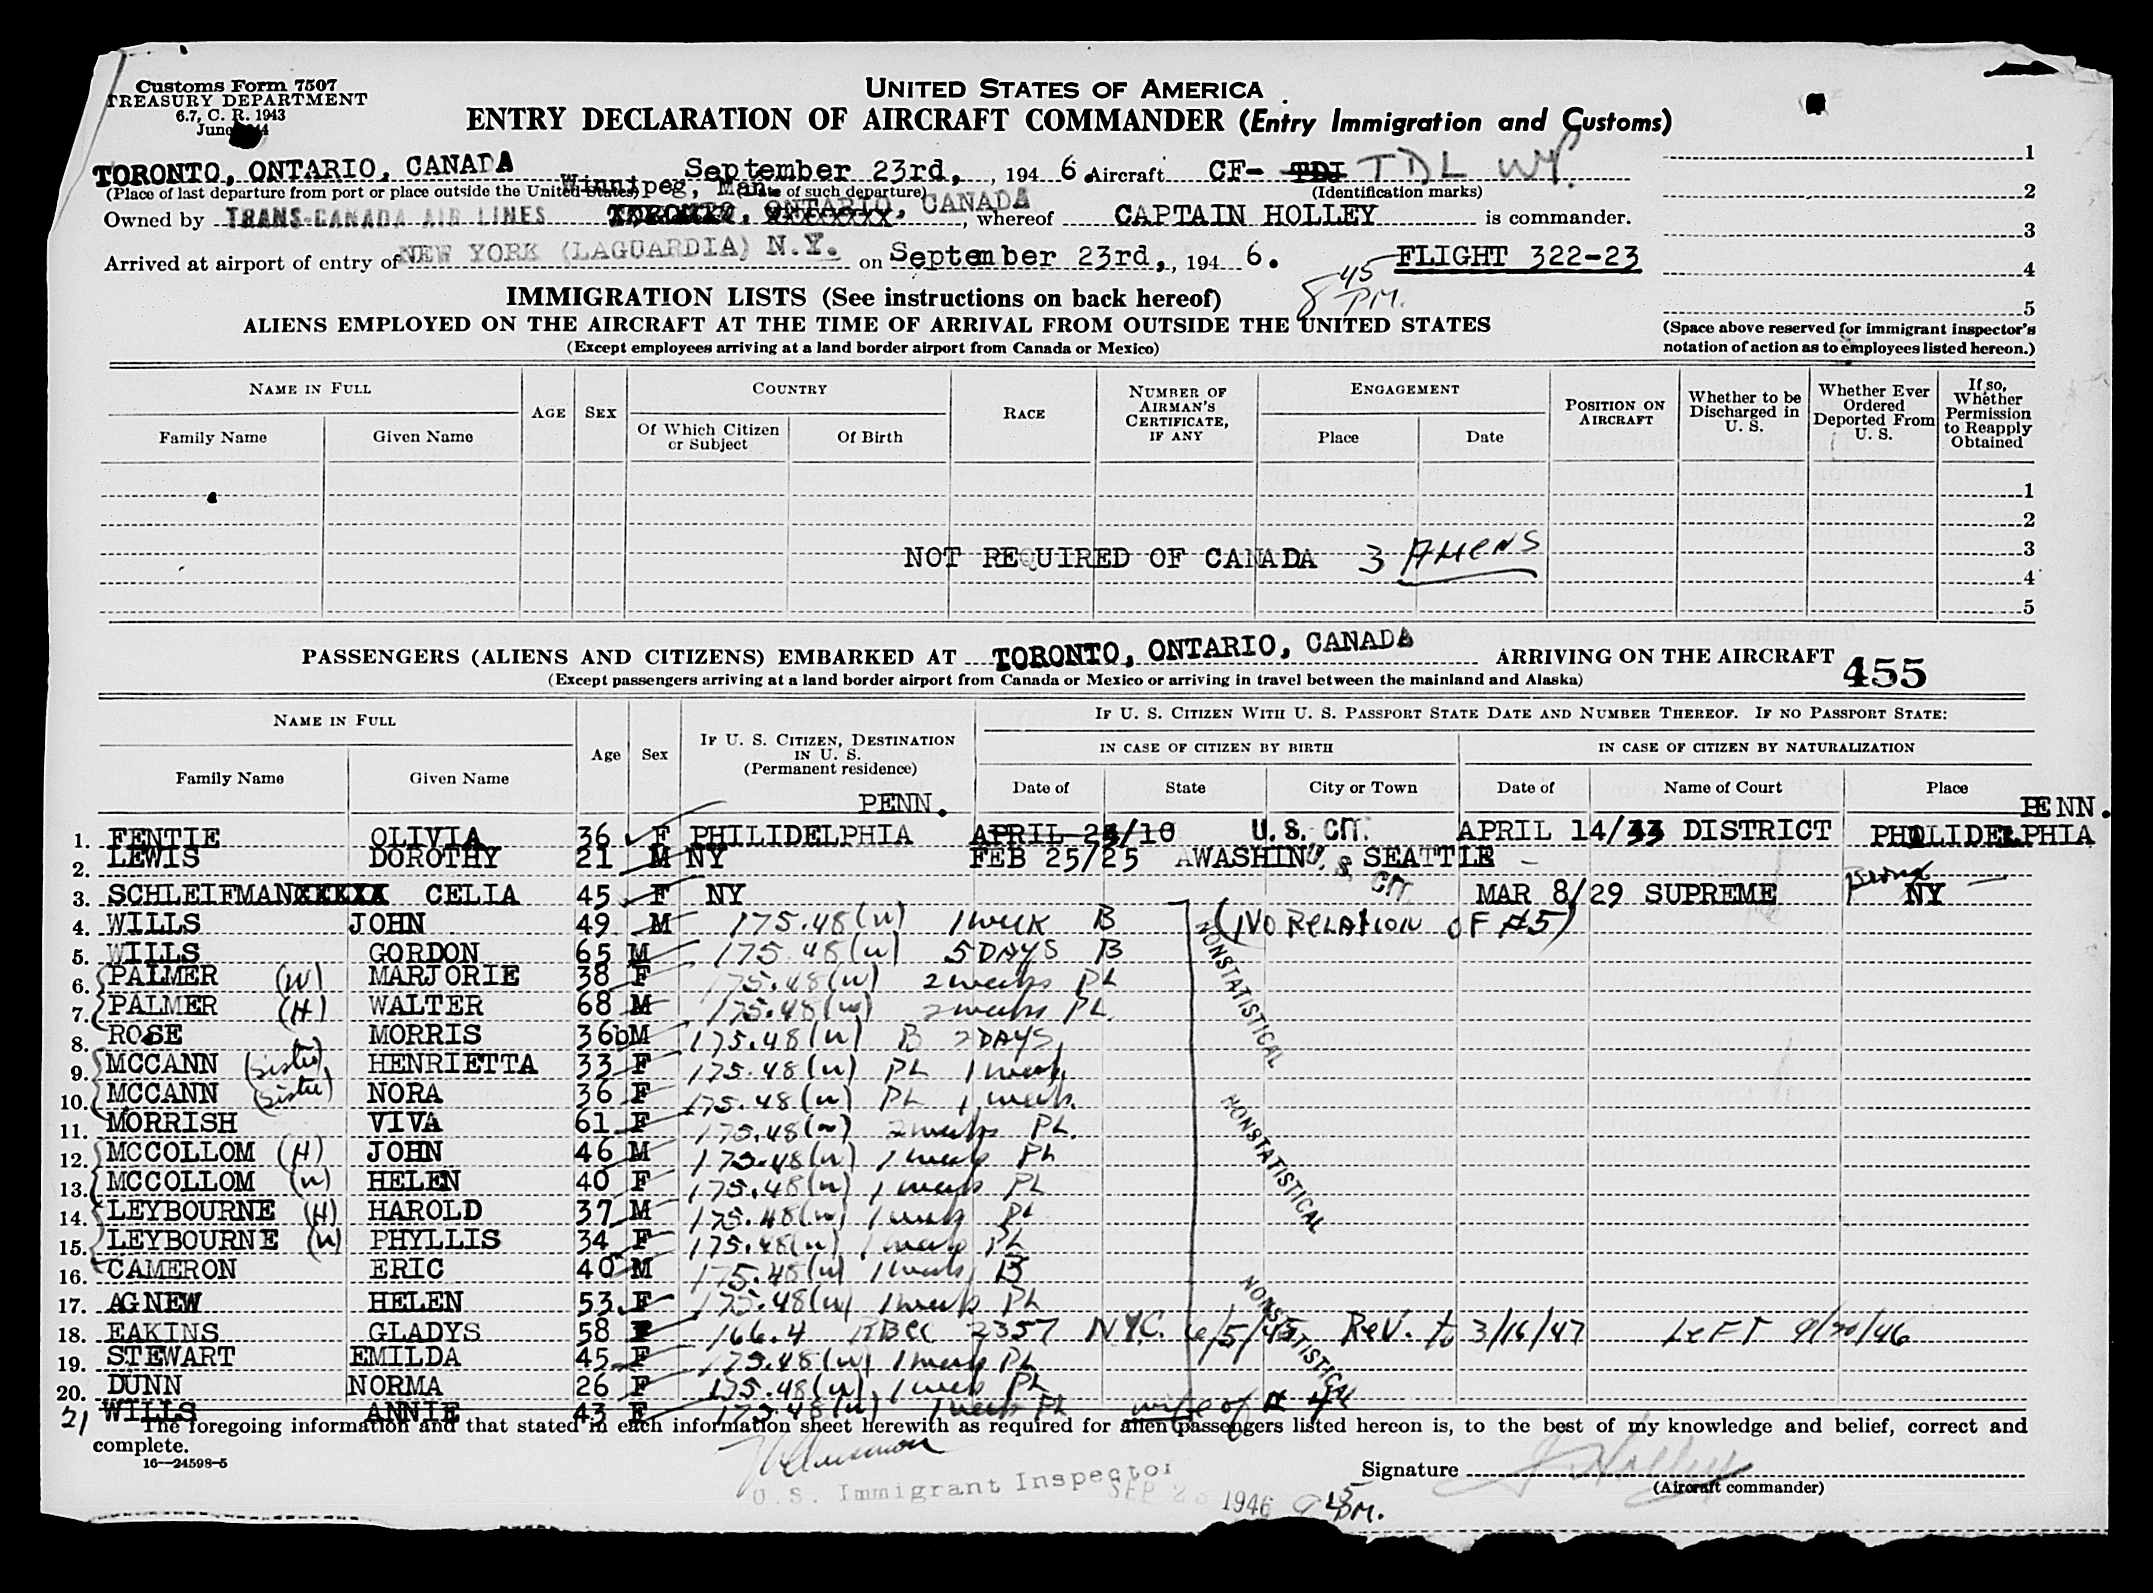 Customs Form 7507
TREASURY DEPARTMENT
6.7, C. R. 1943
June
UNITED STATES OF AMERICA
ENTRY DECLARATION OF AIRCRAFT COMMANDER (Entry Immigration and Customs)
TORONTO, ONTARIO, CANADA September 23rd, , 194 6. Aircraft CF- TDI TDL WP. 1
(Place of last departure from port or place outside the United States) (Date of such departure) (Identification marks) 2
Winnipeg, Man.
Owned by TRANS-CANADA AIR LINES TORONTO, ONTARIO, CANADA , whereof CAPTAIN HOLLEY is commander. 3
Arrived at airport of entry of NEW YORK (LAGUARDIA) N.Y. on September 23rd, , 194 6. FLIGHT 322-23 4
8 45 PM.
IMMIGRATION LISTS (See instructions on back hereof) 5
ALIENS EMPLOYED ON THE AIRCRAFT AT THE TIME OF ARRIVAL FROM OUTSIDE THE UNITED STATES
(Space above reserved for immigrant inspector's
(Except employees arriving at a land border airport from Canada or Mexico)
notation of action as to employees listed hereon.)
NAME IN FULL AGE SEX COUNTRY RACE NUMBER OF AIRMAN'S CERTIFICATE, IF ANY ENGAGEMENT POSITION ON AIRCRAFT Whether to be Discharged in U. S. Whether Ever Ordered Deported From U. S. If so, Whether Permission to Reapply Obtained
Family Name Given Name Of Which Citizen or Subject Of Birth Place Date
1
2
NOT REQUIRED OF CANADA 3 Aliens 3
4
5
PASSENGERS (ALIENS AND CITIZENS) EMBARKED AT TORONTO, ONTARIO, CANADA ARRIVING ON THE AIRCRAFT 455
(Except passengers arriving at a land border airport from Canada or Mexico or arriving in travel between the mainland and Alaska)
NAME IN FULL Age Sex IF U. S. CITIZEN, DESTINATION IN U. S. (Permanent residence) IF U. S. CITIZEN WITH U. S. PASSPORT STATE DATE AND NUMBER THEREOF. IF NO PASSPORT STATE:
IN CASE OF CITIZEN BY BIRTH IN CASE OF CITIZEN BY NATURALIZATION
Family Name Given Name Date of State City or Town Date of Name of Court Place
PENN. PENN.
1. FENTIE OLIVIA 36 F PHILIDELPHIA APRIL 24/10 U. S. CIT. APRIL 14/33 DISTRICT PHILIDELPHIA
2. LEWIS DOROTHY 21 M NY FEB 25/25 WASHIN SEATTLE
U. S. CIT.
3. SCHLEIFMAN CELIA 45 F NY MAR 8/29 SUPREME Bronx NY
4. WILLS JOHN 49 M 175.48(w) 1 week B (No Relation of #5)
5. WILLS GORDON 65 M 175.48(w) 5 DAYS B
6. PALMER (W) MARJORIE 38 F 175.48(w) 2 weeks PL
7. PALMER (H) WALTER 68 M 175.48(w) 2 weeks PL.
8. ROSE MORRIS 36 M 175.48(w) B 2 DAYS
9. MCCANN (Sister) HENRIETTA 33 F 175.48(w) PL 1 week
10. MCCANN (Sister) NORA 36 F 175.48(w) PL 1 week
11. MORRISH VIVA 61 F 175.48(w) 2 weeks PL.
12. MCCOLLOM (H) JOHN 46 M 175.48(w) 1 week PL
13. MCCOLLOM (w) HELEN 40 F 175.48(w) 1 week PL
14. LEYBOURNE (H) HAROLD 37 M 175.48(w) 1 week PL
15. LEYBOURNE (w) PHYLLIS 34 F 175.48(w) 1 week PL
16. CAMERON ERIC 40 M 175.48(w) 1 week B
17. AGNEW HELEN 53 F 175.48(w) 1 week PL
18. EAKINS GLADYS 58 F 166.4 RBCC 2357 NYC. 6/5/45 Rev. to 3/16/47 Left 9/20/46
19. STEWART EMILDA 45 F 175.48(w) 1 week PL
20. DUNN NORMA 26 F 175.48(w) 1 week PL
21 WILLS ANNIE 43 F 175.48(w) 1 week PL wife of # 4
NONSTATISTICAL
NONSTATISTICAL
NONSTATISTICAL
The foregoing information and that stated in each information sheet herewith as required for alien passengers listed hereon is, to the best of my knowledge and belief, correct and
complete.
16—24598-5
Signature J. Holley
(Aircraft commander)
U. S. Immigrant Inspector
SEP 23 1946 9 15 PM.